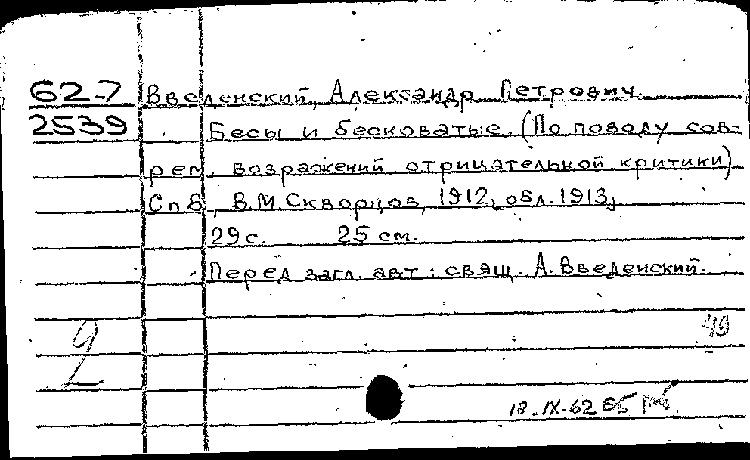 62-7 Введенский, Александр Петрович.
2539 Бесы и бесноватые. (По поводу сов-
рем. возражений отрицательной критики)
Спб, В.М.Скворцов, 1912, обл. 1913,
29 с. 25 см.
Перед загл. авт.: свящ. А.Введенский.
49
2
18.IX-62